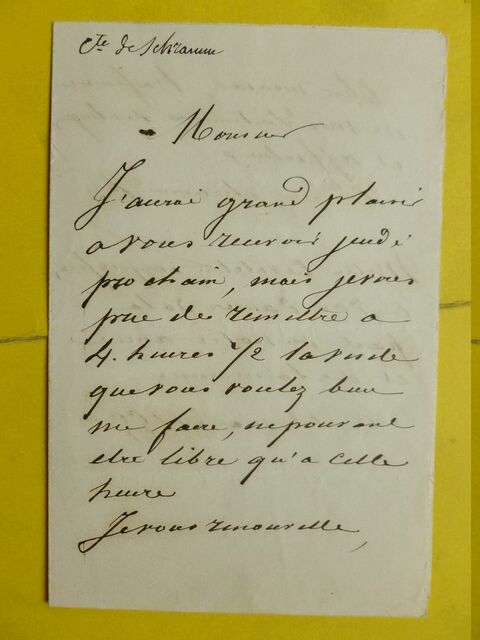 Cte de Schramm
Monsieur
J'aurai grand plaisir
a vous recevoir jeudi
prochain, mais je vous
prie de remettre a
4. heures 1/2 la visite
que vous voulez bien
me faire, ne pouvant
etre libre qu'a cette
heure
Je vous renouvelle,